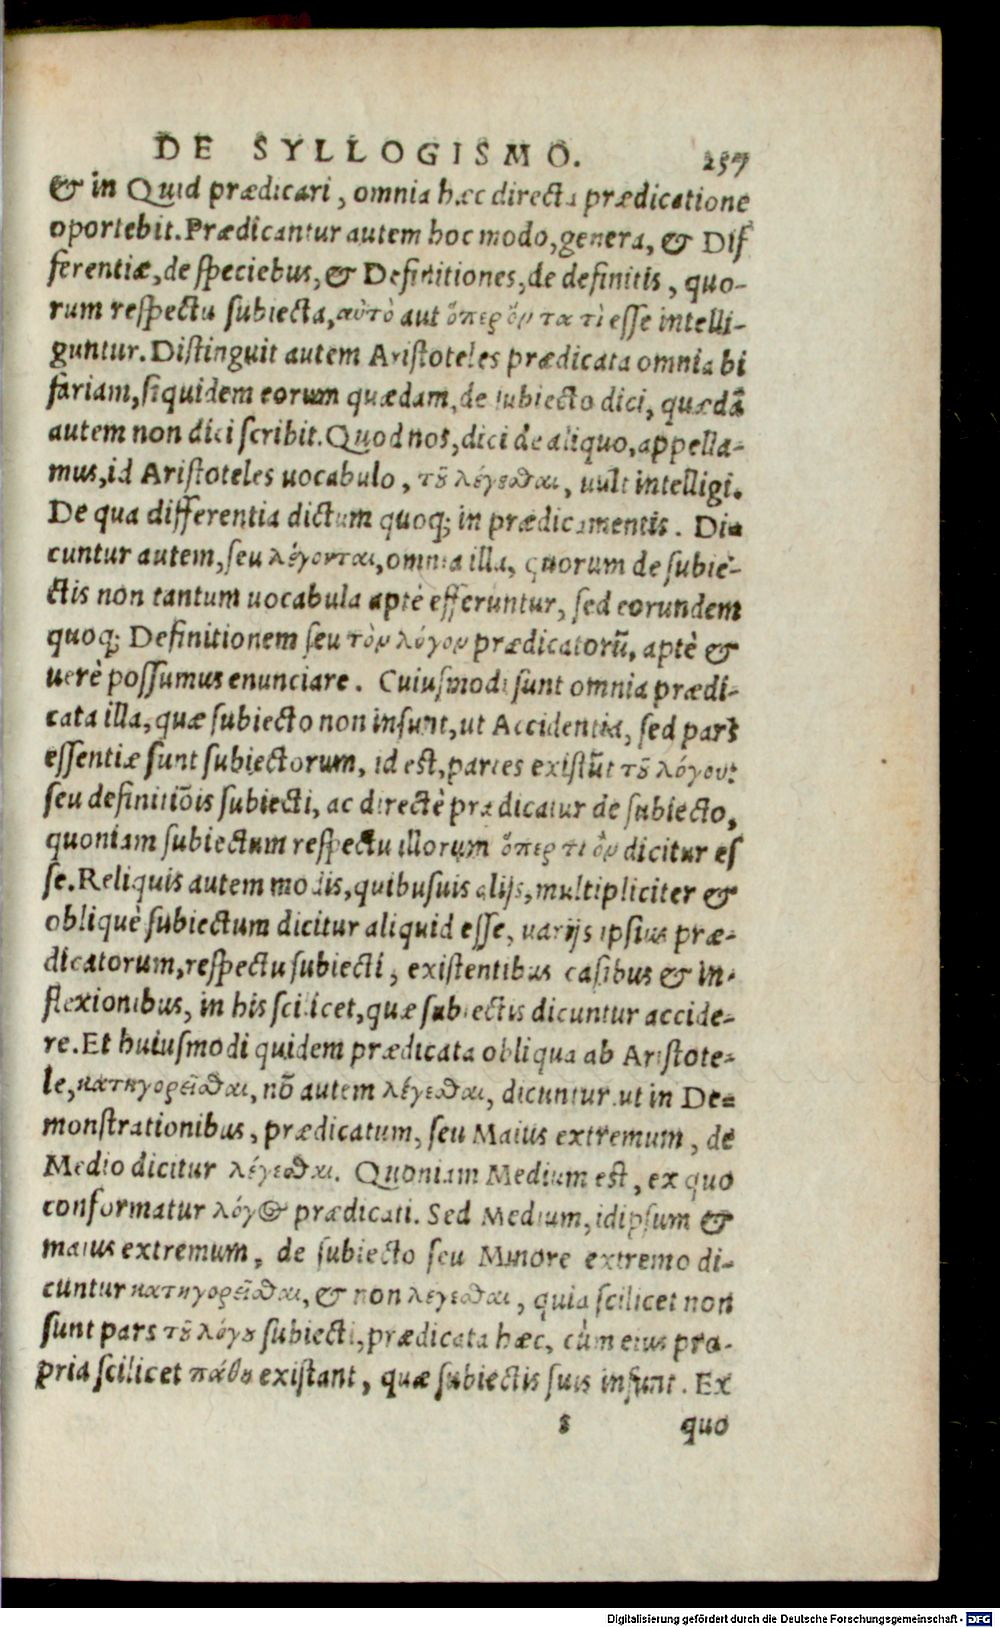 DE SYLLOGISMO. 257
& in Quid prædicari, omnia hæc directa prædicatione
oportebit. Prædicantur autem hoc modo, genera, & Dif
ferentiæ, de speciebus, & Definitiones, de definitis, quo-
rum respectu subiecta, αὐτὸ aut ὅπερ ὄν τα τὶ esse intelli-
guntur. Distinguit autem Aristoteles prædicata omnia bi
fariam, siquidem eorum quædam, de subiecto dici, quædã
autem non dici scribit. Quod nos, dici de aliquo, appella-
mus, id Aristoteles uocabulo, τȣ͂ λέγεσθαι, uult intelligi.
De qua differentia dictum quoq; in prædicamentis. Di-
cuntur autem, seu λέγονται, omnia illa, quorum de subie-
ctis non tantum uocabula aptè efferuntur, sed eorundem
quoq; Definitionem seu τὸν λόγον prædicatorũ, aptè &
uerè possumus enunciare. Cuiusmodi sunt omnia prædi-
cata illa, quæ subiecto non insunt, ut Accidentia, sed pars
essentiæ sunt subiectorum, id est, partes existũt τȣ͂ λόγου:
seu definitiõis subiecti, ac directè prædicatur de subiecto,
quoniam subiectum respectu illorum ὅπερ τι ὂν dicitur es
se. Reliquis autem modis, quibusuis alijs, multipliciter &
obliquè subiectum dicitur aliquid esse, uarijs ipsius præ-
dicatorum, respectu subiecti, existentibus casibus & in-
flexionibus, in his scilicet, quæ subiectis dicuntur accide-
re. Et huiusmodi quidem prædicata obliqua ab Aristote-
le, κατηγορεῖσθαι, nõ autem λέγεσθαι, dicuntur. ut in De-
monstrationibus, prædicatum, seu Maius extremum, de
Medio dicitur λέγεσθαι. Quoniam Medium est, ex quo
conformatur λόγος prædicati. Sed Medium, idipsum &
maius extremum, de subiecto seu Minore extremo di-
cuntur κατηγορεῖσθαι, & non λεγεσθαι, quia scilicet non
sunt pars τȣ͂ λόγȣ subiecti, prædicata hæc, cùm eius pro-
pria scilicet πάθη existant, quæ subiectis suis insunt. Ex
s quo
Digitalisierung gefördert durch die Deutsche Forschungsgemeinschaft - DFG